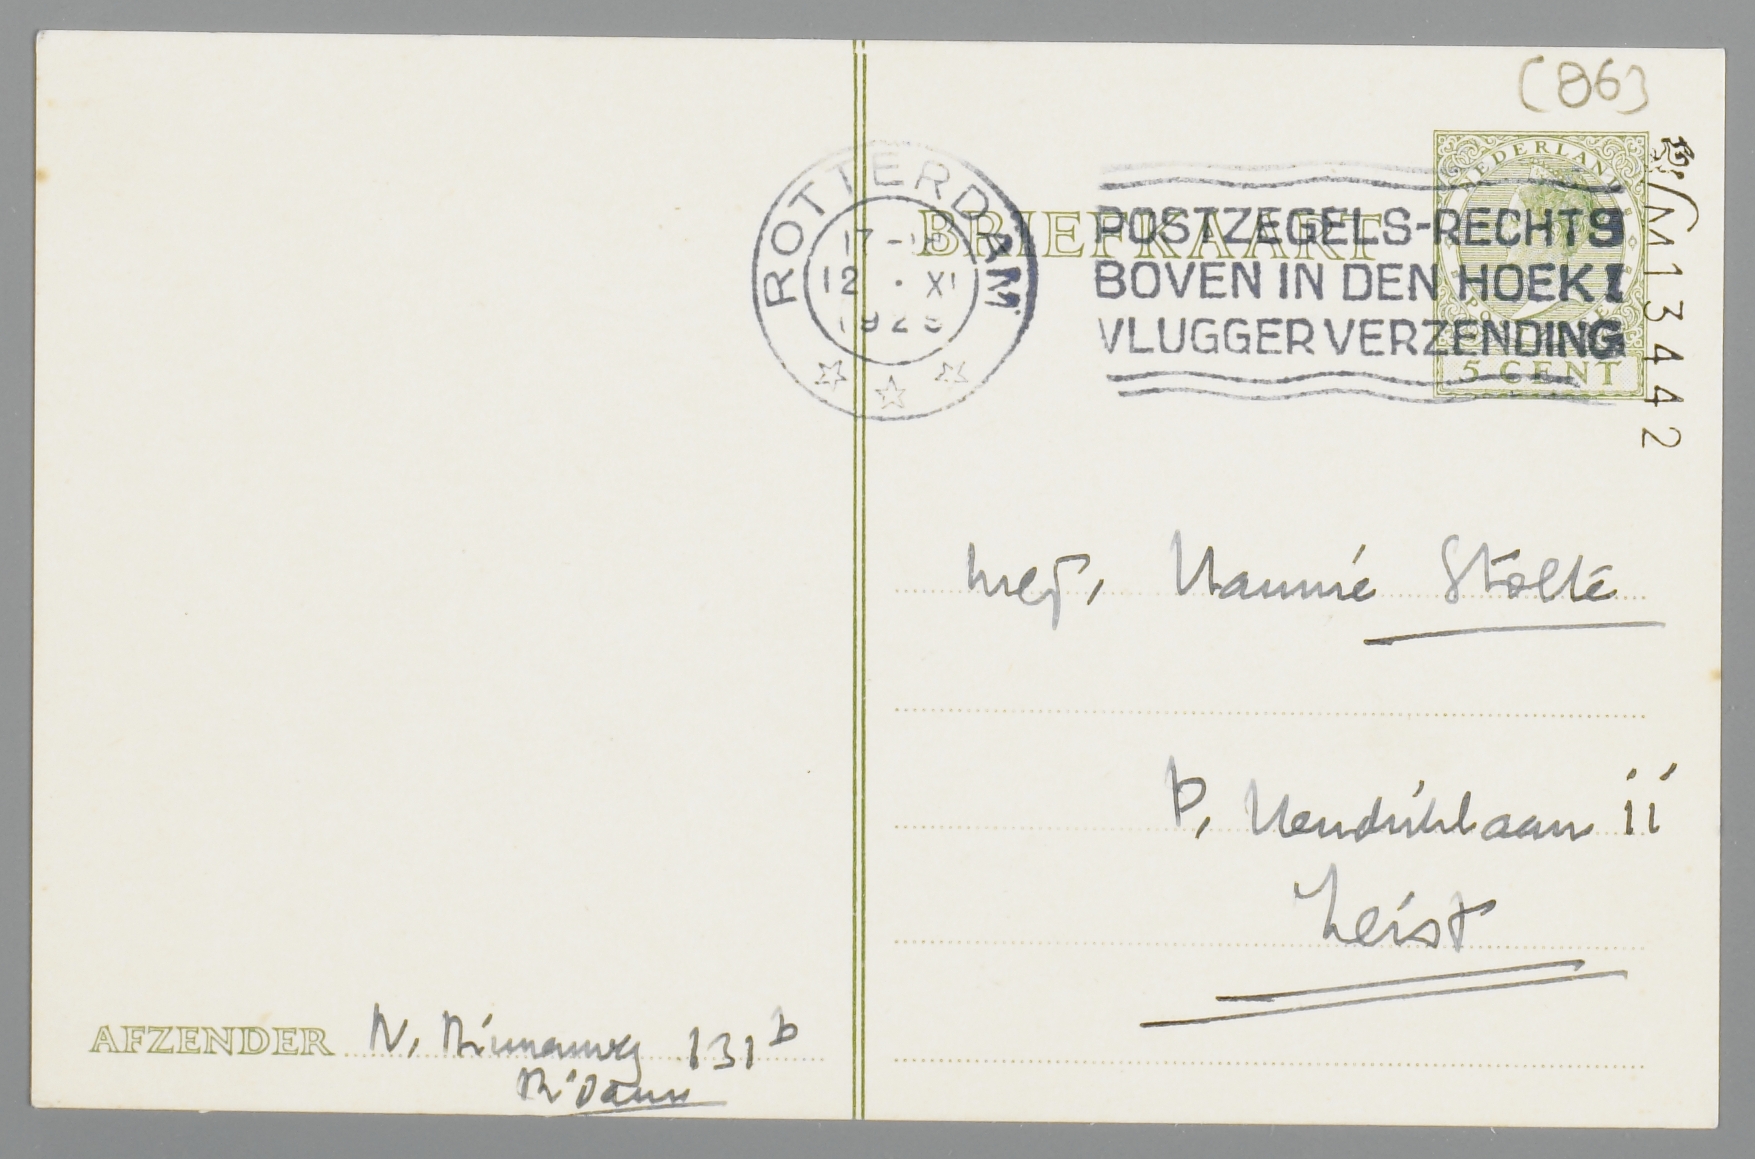 (86)
NEDERLAND
BRIEFKAART
5 CENT
ROTTERDAM
17-
12 · XI
192
POSTZEGELS-RECHTS
BOVEN IN DEN HOEK!
VLUGGER VERZENDING
M13442
Mej. Nannie Stolte
P. Hendriklaan 11
Zeist
AFZENDER N. Binnenweg 131b
R'dam